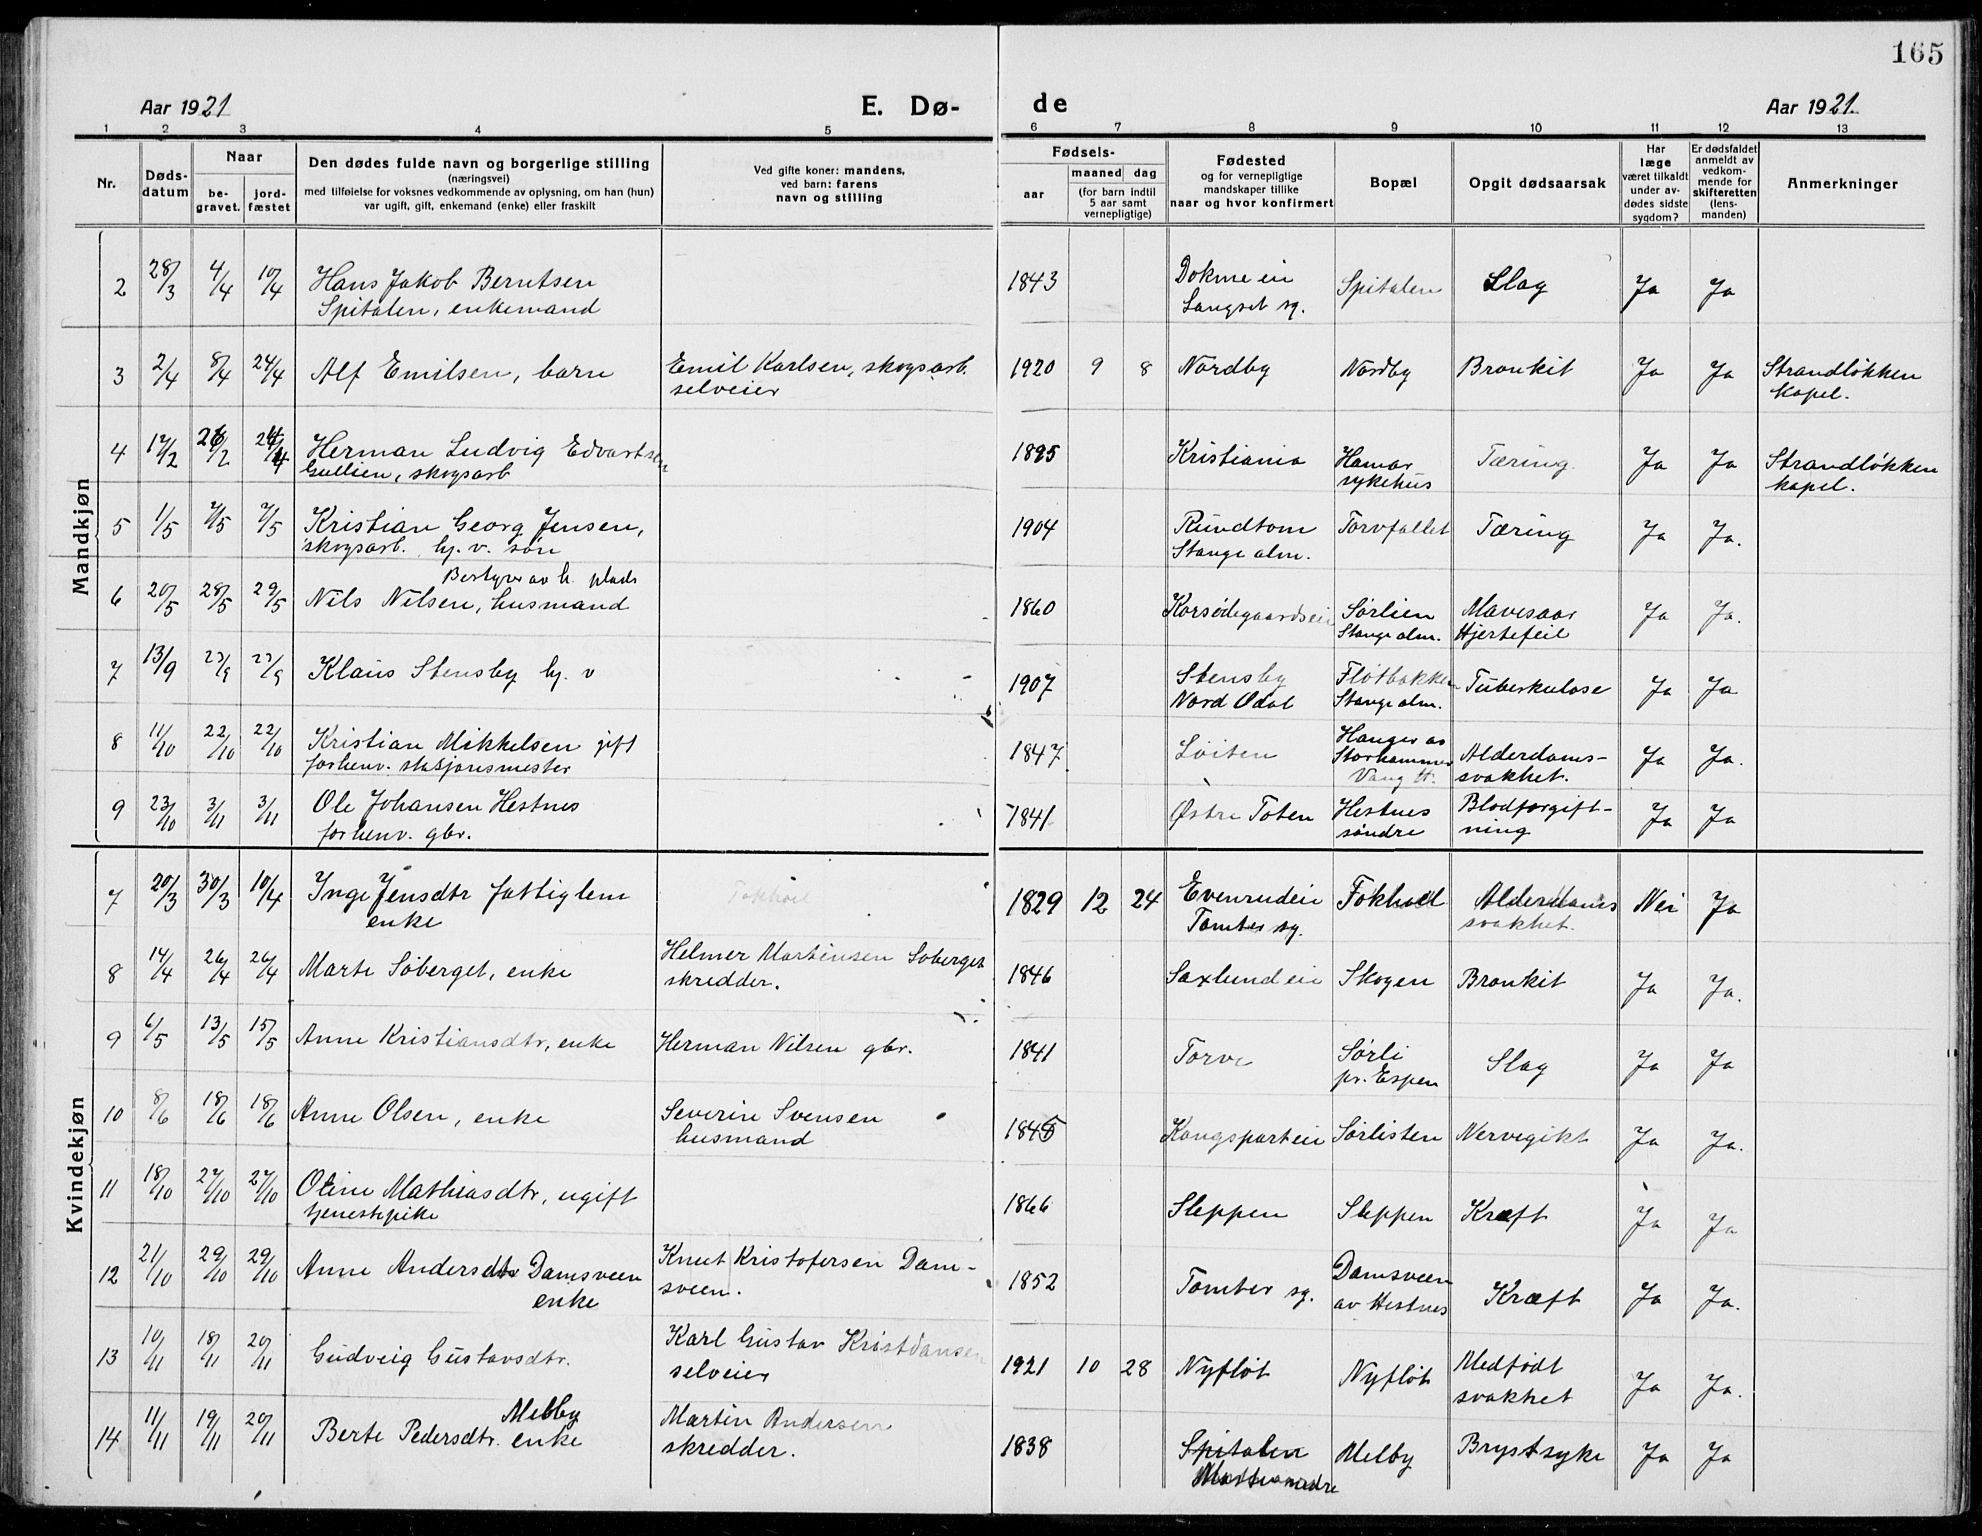 165
Aar 1921 E. Dø- de Aar 1921.
1 2 3 4 5 6 7 8 9 10 11 12 13
Nr. Døds-datum Naar be-gravet. jord-fæstet Den dødes fulde navn og borgerlige stilling (næringsvei) med tilføielse for voksnes vedkommende av oplysning, om han (hun) var ugift, gift, enkemand (enke) eller fraskilt Ved gifte koner: mandens, ved barn: farens navn og stilling Fødsels- aar maaned dag (for barn indtil 5 aar samt vernepligtige) Fødested og for vernepligtige mandskaper tillike naar og hvor konfirmert Bopæl Opgit dødsaarsak Har læge været tilkaldt under av-dødes sidste sygdom? Er dødsfaldet anmeldt av vedkom-mende for skifteretten (lens-manden) Anmerkninger
Mandkjøn
2 28/3 4/4 10/4 Hans Jakob Berntsen 1843 Dokme eie Spitalen Slag Ja Ja
Spitalen, enkemand Langset sg.
3 2/4 8/4 24/4 Alf Emilsen, barn Emil Karlsen, skogsarb. 1920 9 8 Nordby Nordby Bronkit Ja Ja Strandløkken
selveier kapel.
4 17/2 26/2 24/4 Herman Ludvig Edvartsen 1895 Kristiania Hamar Tæring Ja Ja Strandløkken
Gullien, skogsarb sykehus kapel.
5 1/5 7/5 7/5 Kristian Georg Jensen, 1904 Rundtom Torvfallet Tæring Ja Ja.
skogsarb. hj. v. søn Stange alm.
Bestyrer av h. plads
6 20/5 28/5 29/5 Nils Nilsen, husmand 1860 Korsødegaardseie Sørlien Mavesaar Ja Ja.
Stange alm. Hjertefeil
7 13/9 23/9 23/9 Klaus Stensby hj. v 1907 Stensby Fløtbakken Tuberkulose Ja Ja
Nord Odal Stange alm.
8 11/10 22/10 22/10 Kristian Mikkelsen gift 1847 Løiten Hanger av Alderdoms- Ja Ja.
forhenv. stasjonsmester Storhammer svakhet.
Vang H.
9 23/10 3/11 3/11 Ole Johansen Hestnes 1841 Østre Toten Hestnes Blodforgift- Ja Ja
forhenv. gbr. søndre ning
Kvindekjøn
7 20/3 30/3 10/4 Inge Jensdtr fattiglem 1829 12 24 Evenrudeie Fokhoel Alderdoms Nei Ja
enke Tomter sg. svakhet.
8 14/4 26/4 26/4 Marte Søberget, enke Helmer Martinsen Søberget 1846 Saxlundeie Skogen Bronkit Ja Ja.
skredder.
9 6/5 13/5 15/5 Anne Kristiansdtr, enke Herman Nilsen gbr. 1841 Torve Sørli Slag Ja Ja
pr. Espen
10 8/6 18/6 18/6 Anne Olsen, enke Severin Svensen 1845 Kongsparteie Sørlisten Nervegikt Ja Ja.
husmand
11 18/10 27/10 27/10 Oline Mathiasdtr, ugift 1866 Sleppen Sleppen Kræft Ja Ja
tjenestepike
12 21/10 29/10 29/10 Anne Andersdtr Damsveen Knut Kristofersen Dam- 1852 Tomter sg. Damsveen Kræft Ja Ja.
enke sveen. av Hestnes
13 10/11 18/11 20/11 Gudveig Gustavsdtr. Karl Gustav Kristiansen 1921 10 28 Nyfløt Nyfløt Medfødt Ja Ja.
selveier svakhet
14 11/11 19/11 20/11 Berte Pedersdtr. Melby Martin Andersen 1838 Spitalen Melby Brystsyke Ja Ja
enke skredder.